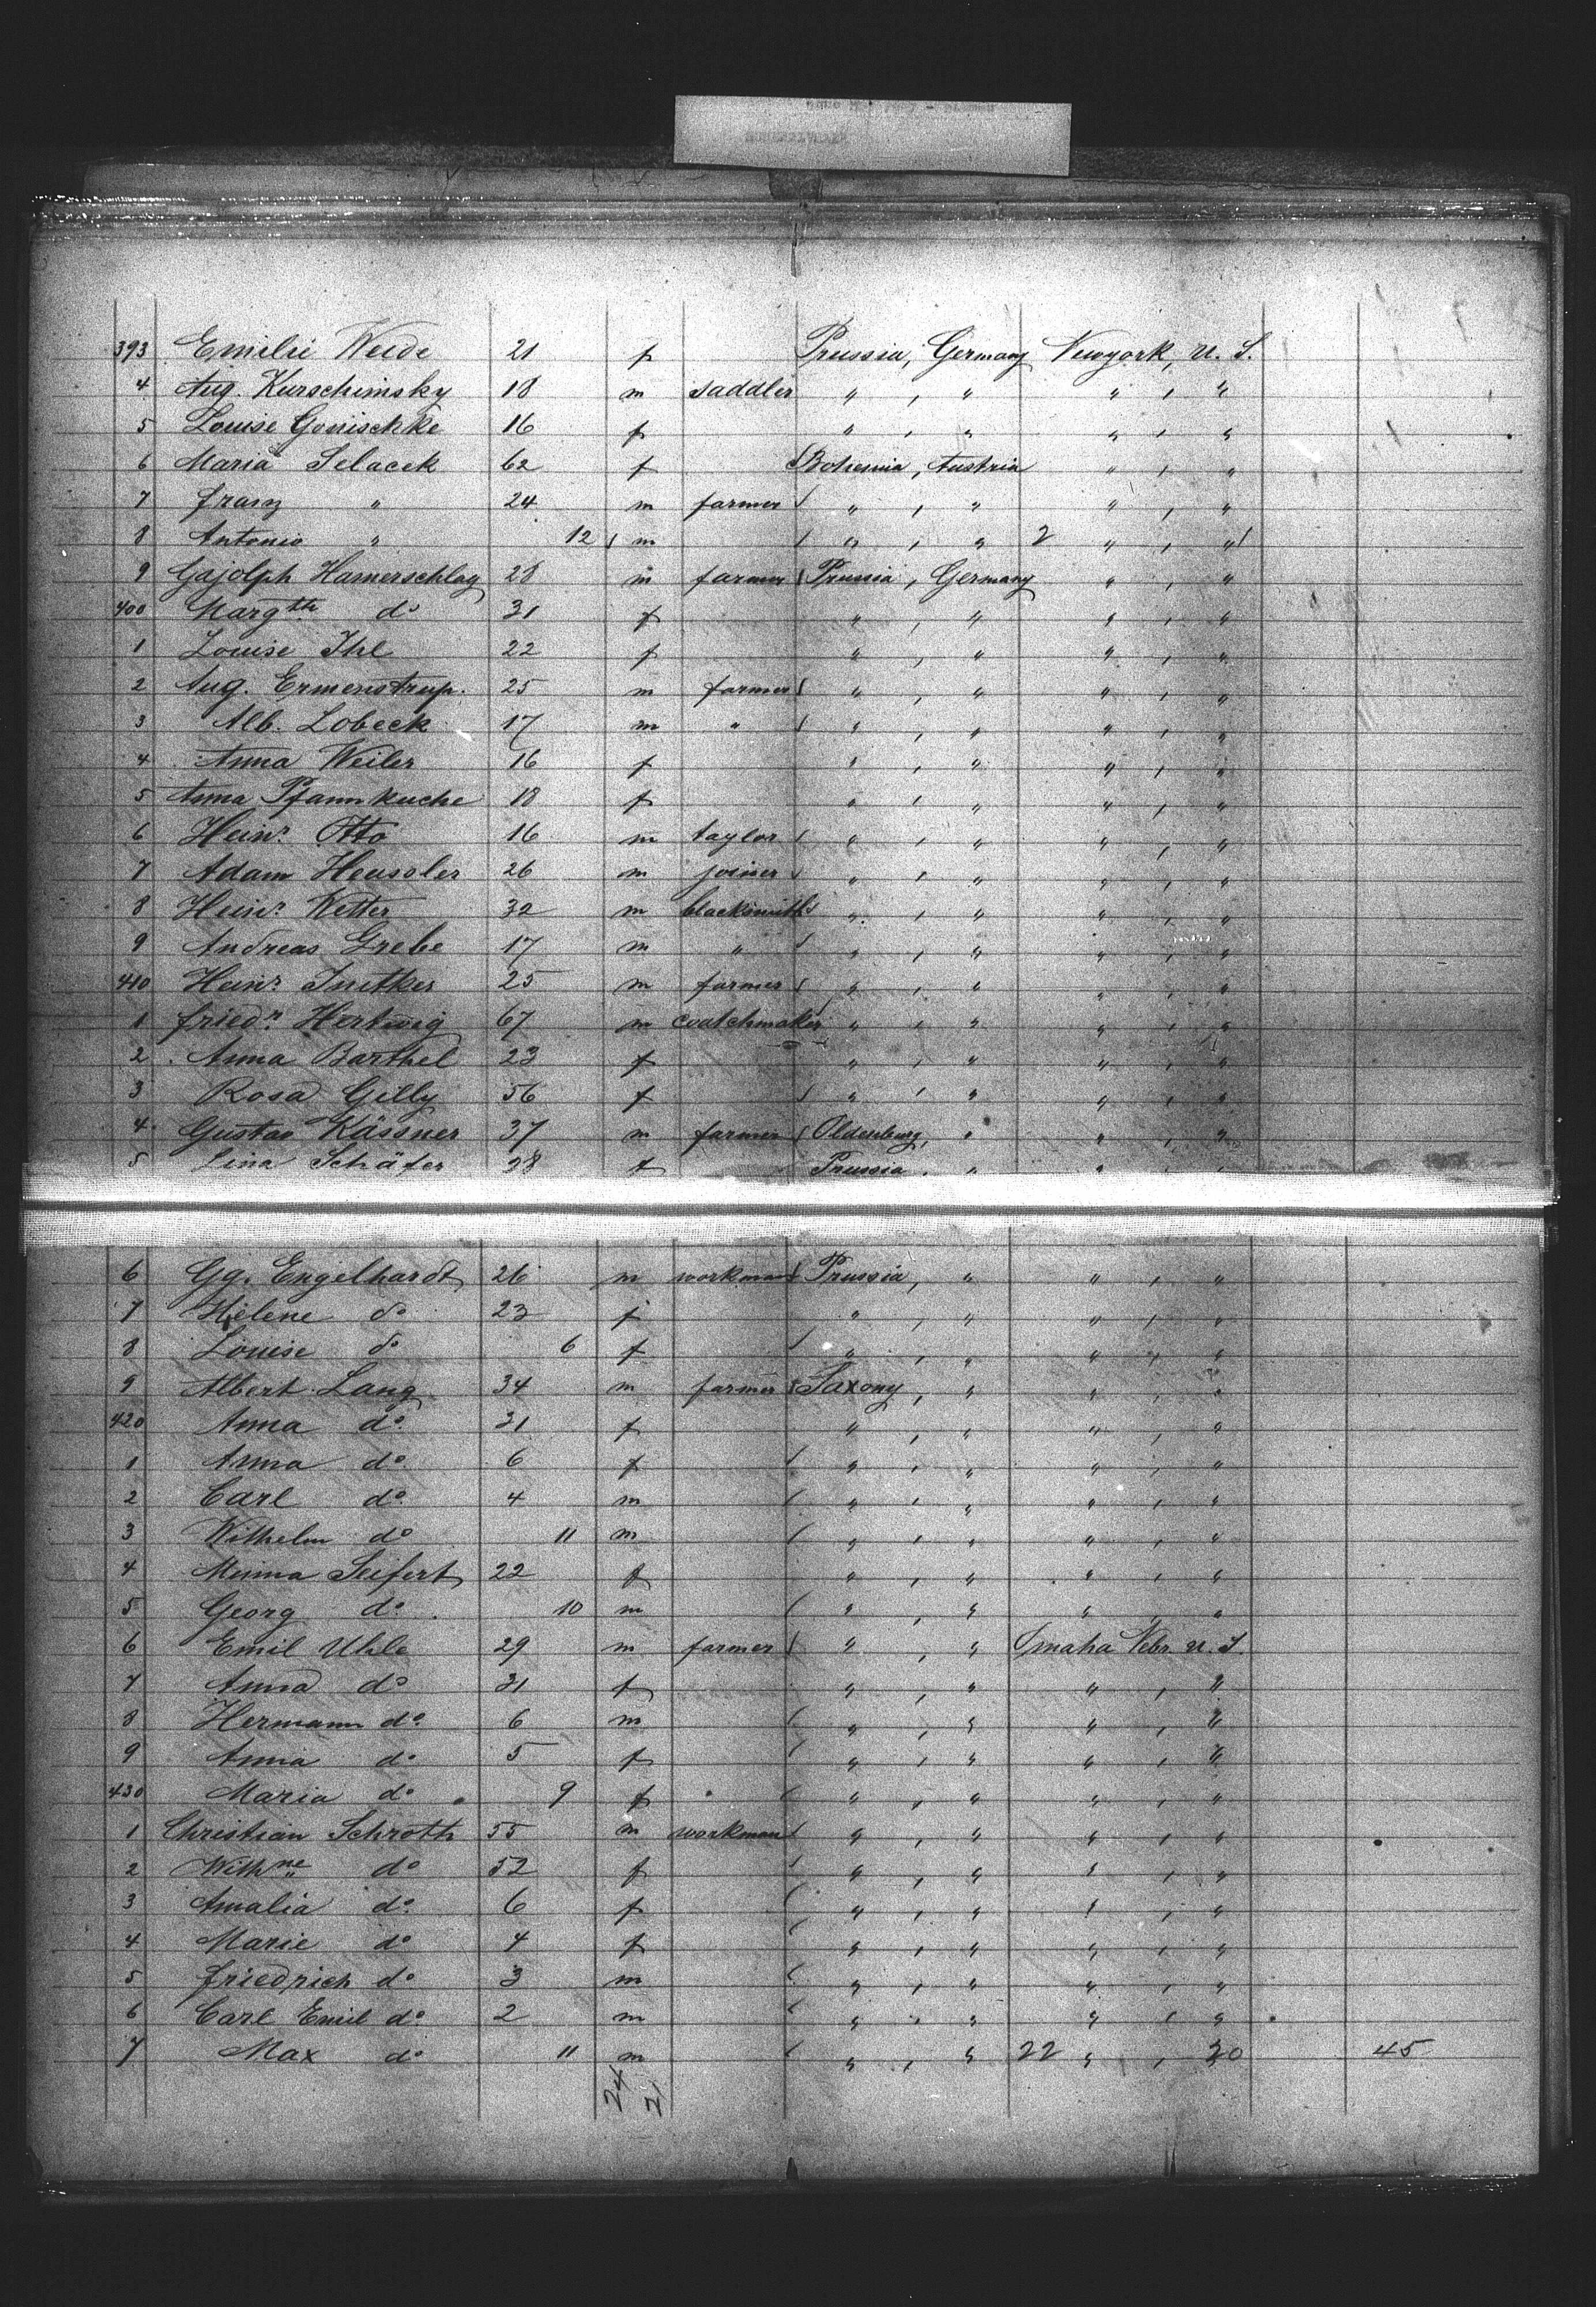 393 Emilie Weide 21 f Prussia, Germany Newyork, U. S.
4 Aug. Kurschimsky 18 m saddler " , " " , "
5 Louise Gonischke 16 f " , " " , "
6 Maria Selacek 62 f Bohemia, Austria " , "
7 Franz " 24 m farmer " , " " , "
8 Antonio " 12 m " , " 2 " , "
9 Gajolph Hamerschlag 28 m farmer Prussia, Germany " , "
400 Margth do 31 f " , " " , "
1 Louise Ihl 22 f " , " " , "
2 Aug. Ermenstrup. 25 m farmer " , " " , "
3 Alb. Lobeck 17 m " " , " " , "
4 Anna Weiler 16 f " , " " , "
5 Anna Pfannkuche 18 f " , " " , "
6 Heinr. Otto 16 m taylor " , " " , "
7 Adam Heussler 26 m joiner " , " " , "
8 Heinr. Ketter 32 m blacksmith " , " " , "
9 Andreas Grebe 17 m " " , " " , "
410 Heinr. 25 m farmer " , " " , "
1 Friedr. Hertwig 67 m coatchmaker " , " " , "
2 Anna Barthel 23 f " , " " , "
3 Rosa Gilly 56 f " , " " , "
4 Gustav Kässner 37 m farmer Oldenburg, " " , "
5 Lina Schäfer 38 f Prussia , " " , "
6 Gg. Engelhardt 26 m workman Prussia, " " , "
7 Helene do 23 f " , " " , "
8 Louise do 6 f " , " " , "
9 Albert Lang 34 m farmer Saxony, " " , "
420 Anna do. 31 f " , " " , "
1 Anna do. 6 f " , " " , "
2 Carl do. 4 m " , " " , "
3 Wilhelm do 11 m " , " " , "
4 Minna Seifert 22 f " , " " , "
5 Georg do. 10 m " , " " , "
6 Emil Uhle 29 m farmer " , " Omaha Nebr. U. S.
7 Anna do 31 f " , " " , "
8 Hermann do. 6 m " , " " , "
9 Anna do 5 f " , " " , "
430 Maria do 9 f " , " " , "
1 Christian Schroth 55 m workman " , " " , "
2 Wilhne do 52 f " , " " , "
3 Amalia do. 6 f " , " " , "
4 Marie do 4 f " , " " , "
5 Friedrich do. 3 m " , " " , "
6 Carl Emil do. 2 m " , " " , "
7 Max do 11 m " , " 22 " , 20 45
24
21